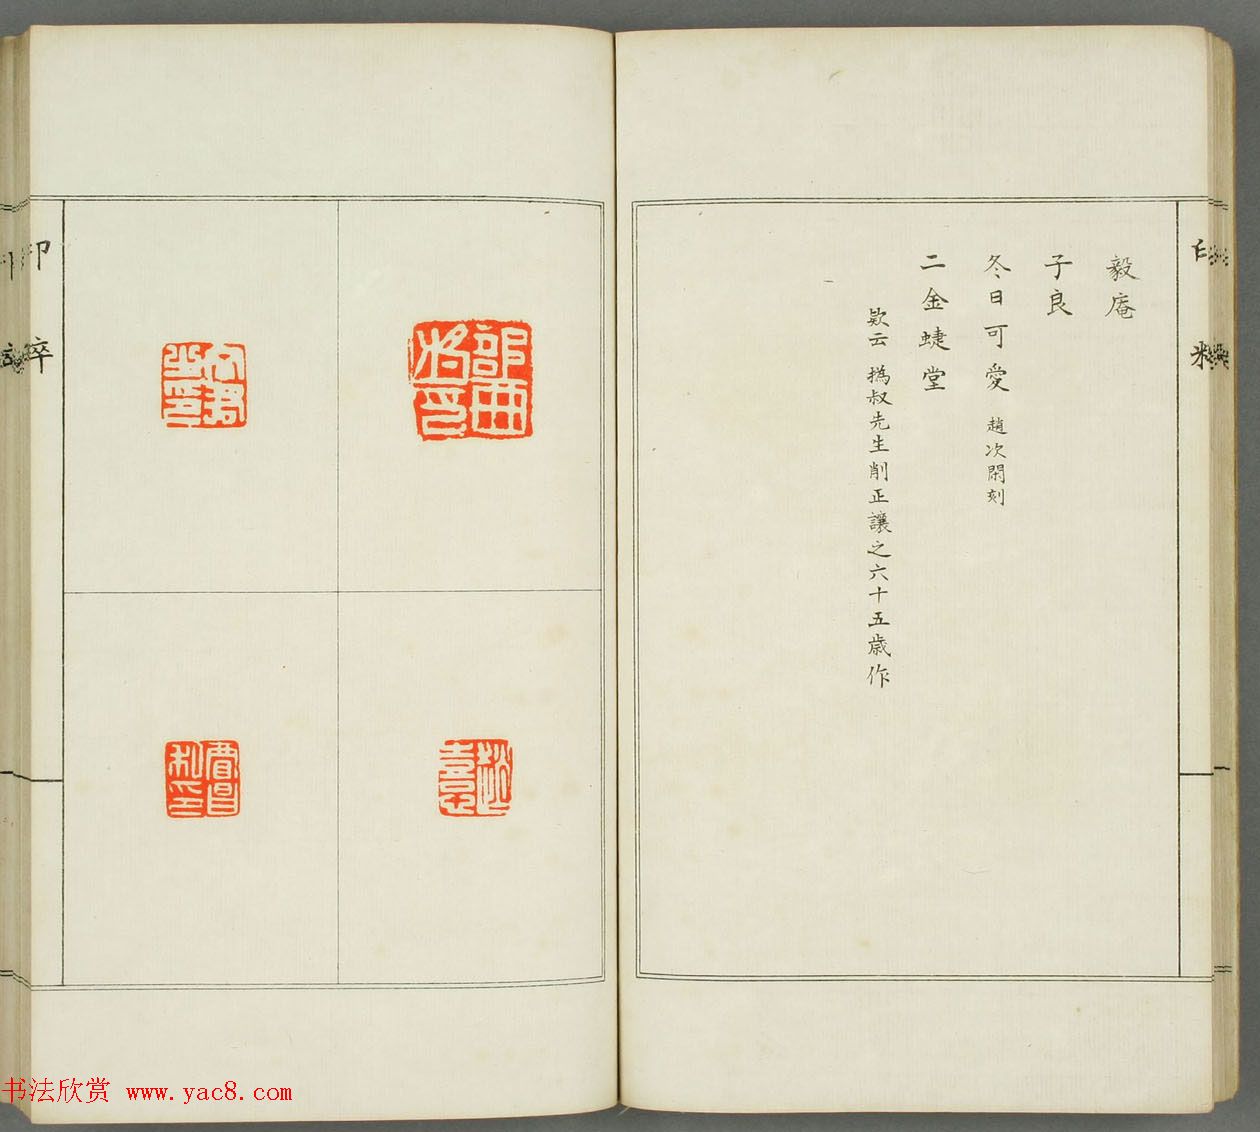 毅庵
子良
冬日可愛 趙次閑刻
二金蜨堂
欵云 撝叔先生削正讓之六十五歲作
部曲將印
印粹
书法欣赏 www.yac8.com